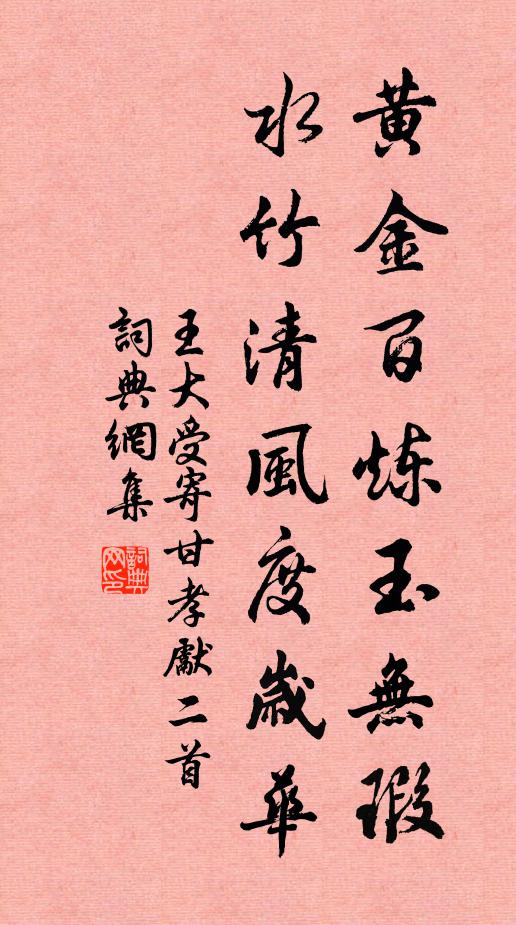 黄金百炼玉無瑕
水竹清風度歲華
王大受寄甘孝獻二首
詞典網集
詞典網印